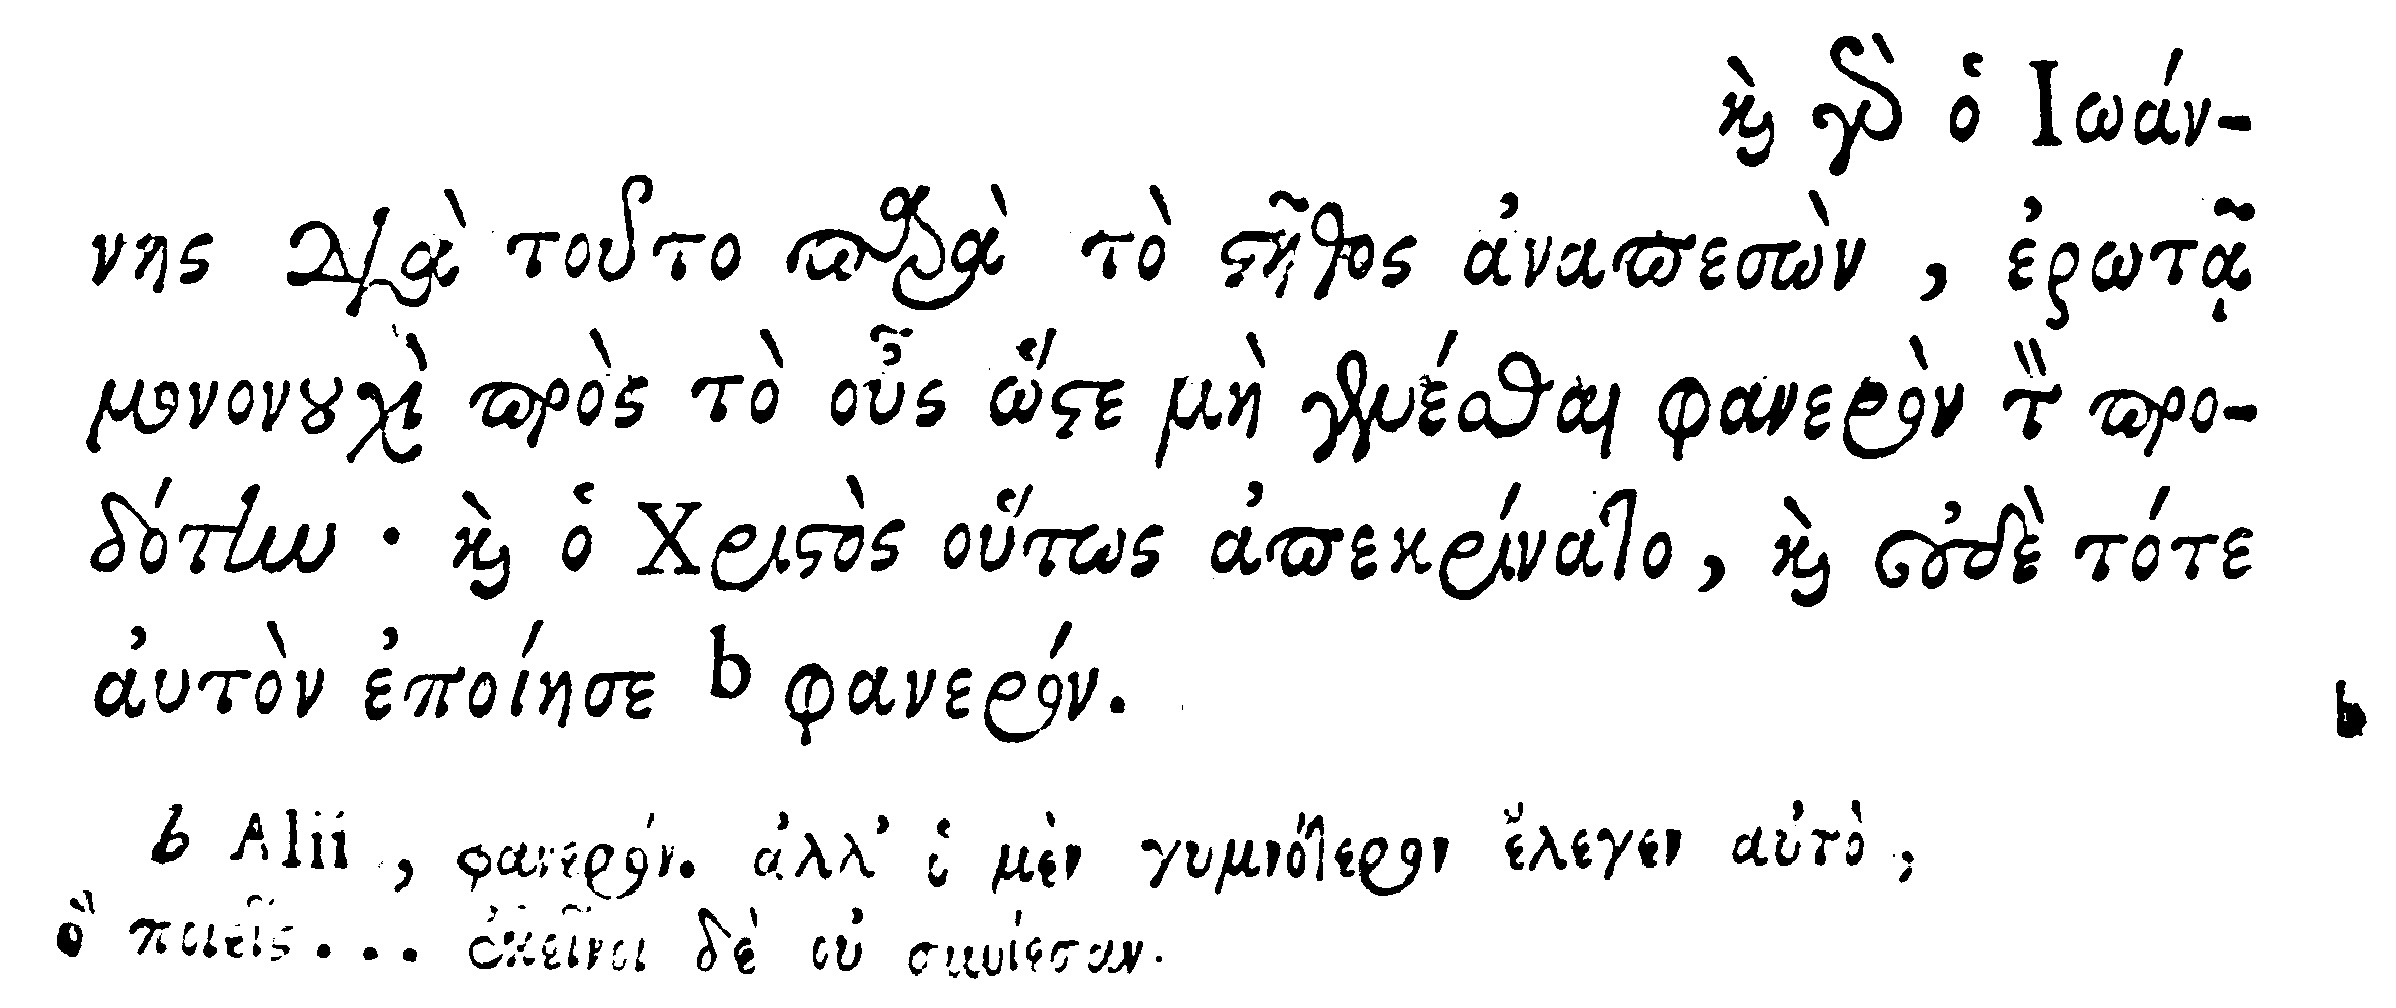 καὶ γὰρ ὁ Ιωάν-
νης διὰ τοῦτο παρὰ τὸ στῆθος ἀναπεσὼν, ἐρωτᾷ
μονονουχὶ πρὸς τὸ οὖς ὥστε μὴ γενέσθαι φανερὸν τὸν προ-
δότην· καὶ ὁ Χριστὸς οὕτως ἀπεκρίνατο, καὶ οὐδὲ τότε
αὐτὸν ἐποίησε b φανερόν.
b
b Alii, φανερόν. ἀλλ' ὁ μὲν γυμνότερον ἔλεγεν αὐτὸ,
ὃ ποιεῖς... ἐκεῖνοι δὲ οὐ συνίεσαν.